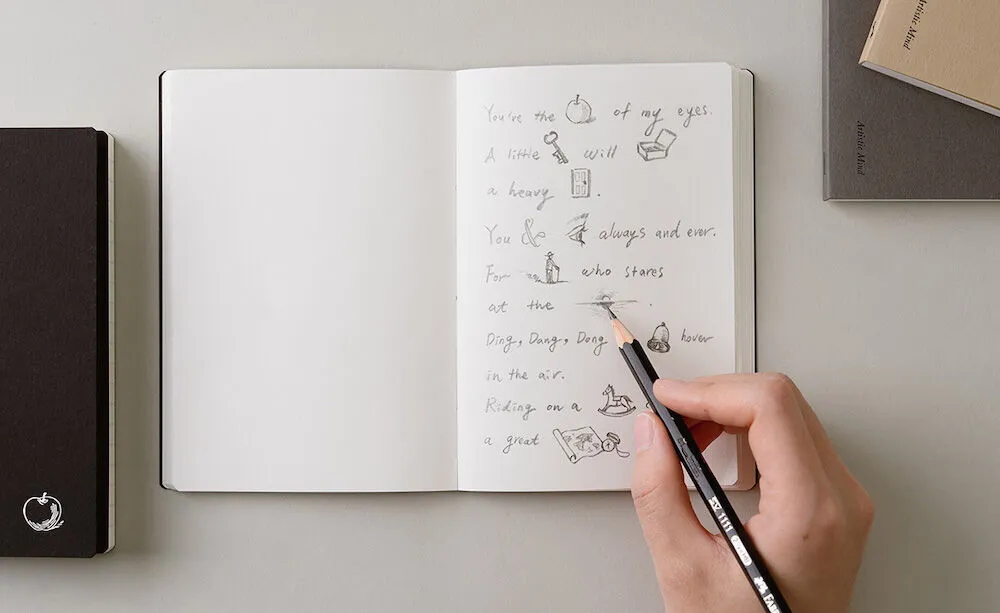 You're the of my eyes.
A little will
a heavy .
You & always and ever.
For who stares
at the .
Ding, Dang, Dong hover
in the air.
Riding on a
a great
Artistic Mind
Artistic Mind
1111